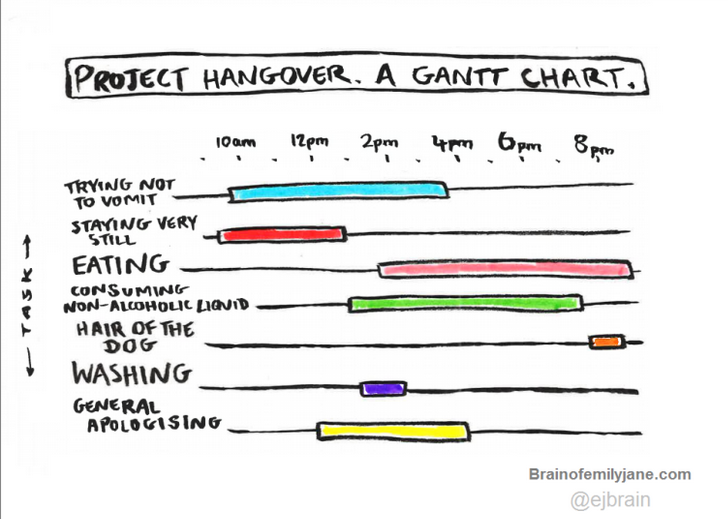 PROJECT HANGOVER. A GANTT CHART.
10am 12pm 2pm 4pm 6pm 8pm
TRYING NOT
TO VOMIT
STAYING VERY
STILL
EATING
CONSUMING
NON-ALCOHOLIC LIQUID
HAIR OF THE
DOG
WASHING
GENERAL
APOLOGISING
TASK
Brainofemilyjane.com
@ejbrain